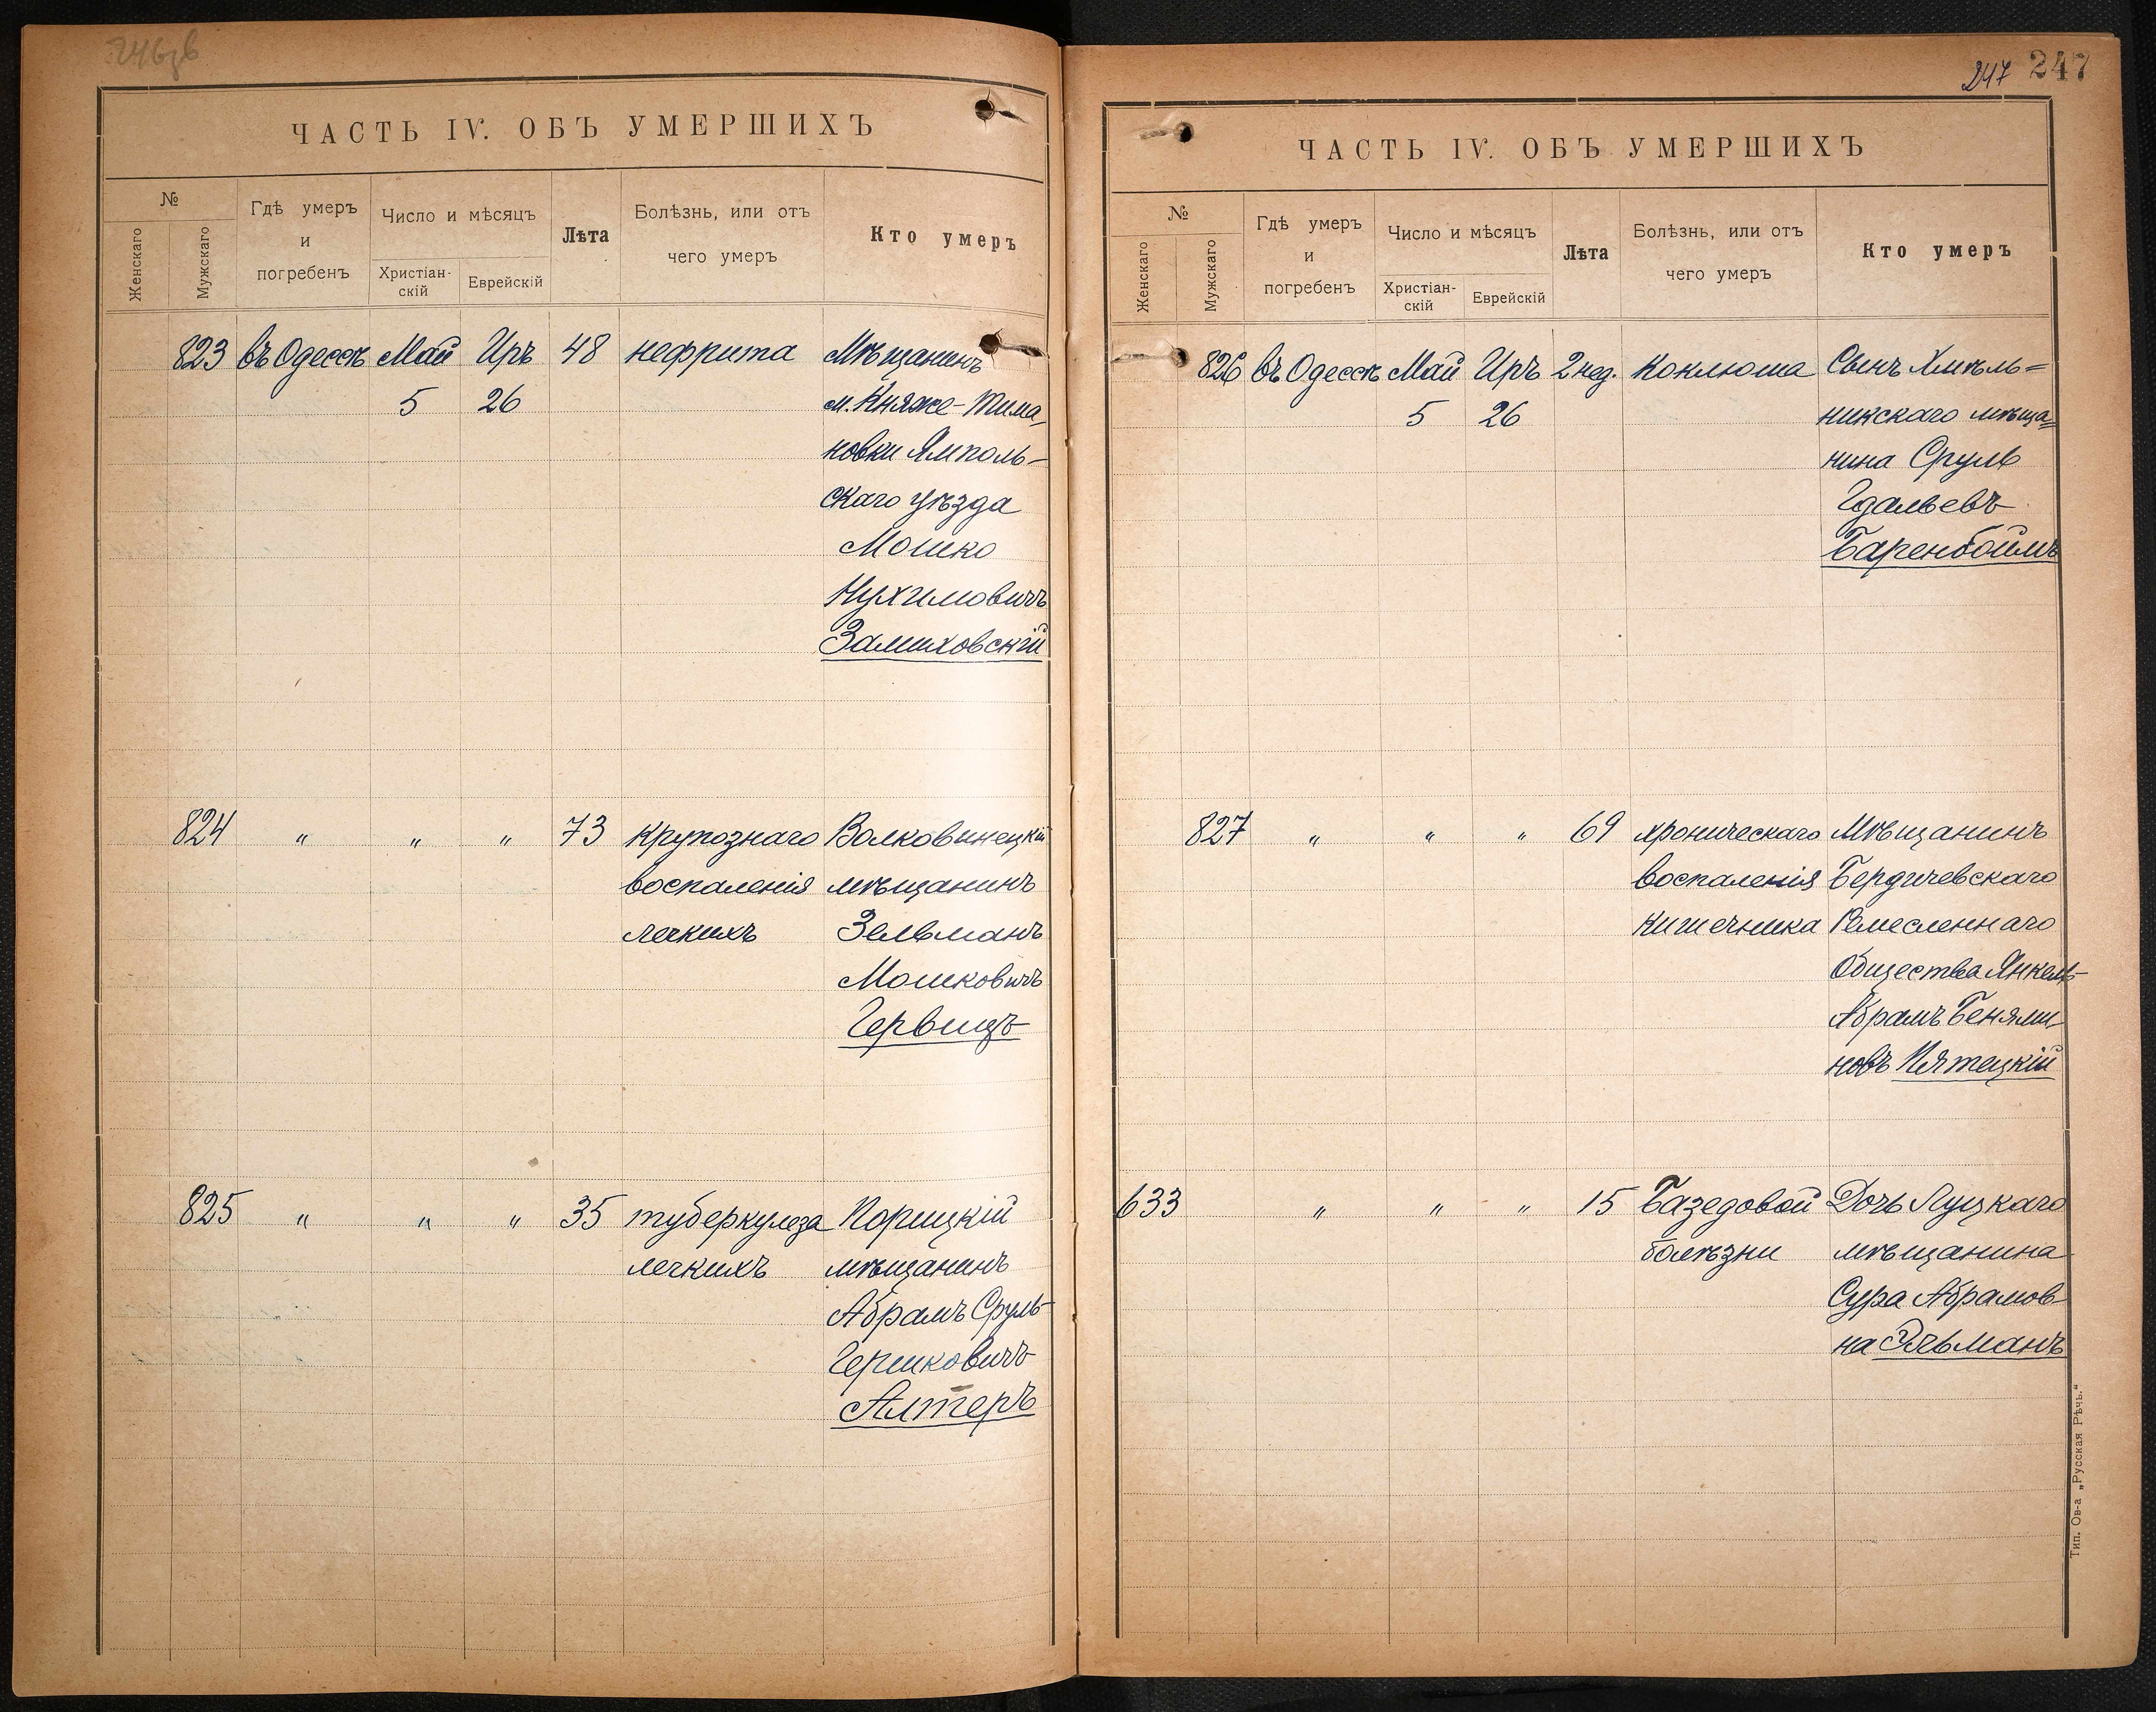 ЧАСТЬ IV. ОБЪ УМЕРШИХЪ
№
Женскаго
Мужскаго
Гдѣ умеръ
и
погребенъ
Число и мѣсяцъ
Христіан-
скій
Еврейскій
Лѣта
Болѣзнь, или отъ
чего умеръ
Кто умеръ
823 въ Одессѣ Май Иръ 48 нефрита Мѣщанинъ
5 26 м. Княже-Тима
новки Ямполь-
скаго уѣзда
Мошко
Нухимовичъ
Замиховскій
824 " " " 73 крупознаго Волковинецкій
воспаленія мѣщанинъ
легкихъ Зельманъ
Мошковичъ
Гервицъ
825 " " " 35 туберкулеза Корицкій
легкихъ мѣщанинъ
Абрамъ Сруль-
Гершковичъ
Алтеръ
247 247
ЧАСТЬ IV. ОБЪ УМЕРШИХЪ
№
Женскаго
Мужскаго
Гдѣ умеръ
и
погребенъ
Число и мѣсяцъ
Христіан-
скій
Еврейскій
Лѣта
Болѣзнь, или отъ
чего умеръ
Кто умеръ
826 въ Одессѣ Май Иръ 2 нед. Коклюша Сынъ Хмѣль=
5 26 никскаго мѣща=
нина Сруль
Гдальевъ
Баренбоймъ
827 " " " 69 хроническаго Мѣщанинъ
воспаленія Бердичевскаго
кишечника Ремесленнаго
Общества Янкель-
Абрамъ Беньями-
новъ Пятецкій
633 " " " 15 Базедовой Дочь Луцкаго
болѣзни мѣщанина
Сура Абрамов-
на
Тип. Ов-а „Русская Рѣчь."